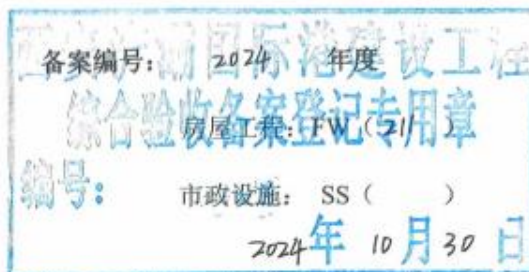 西安浐灞国际港建设工程
备案编号： 2024 年度
综合验收备案登记专用章
房屋工程：FW（211 ）
编号：
市政设施： SS（ ）
2024年 10月30日